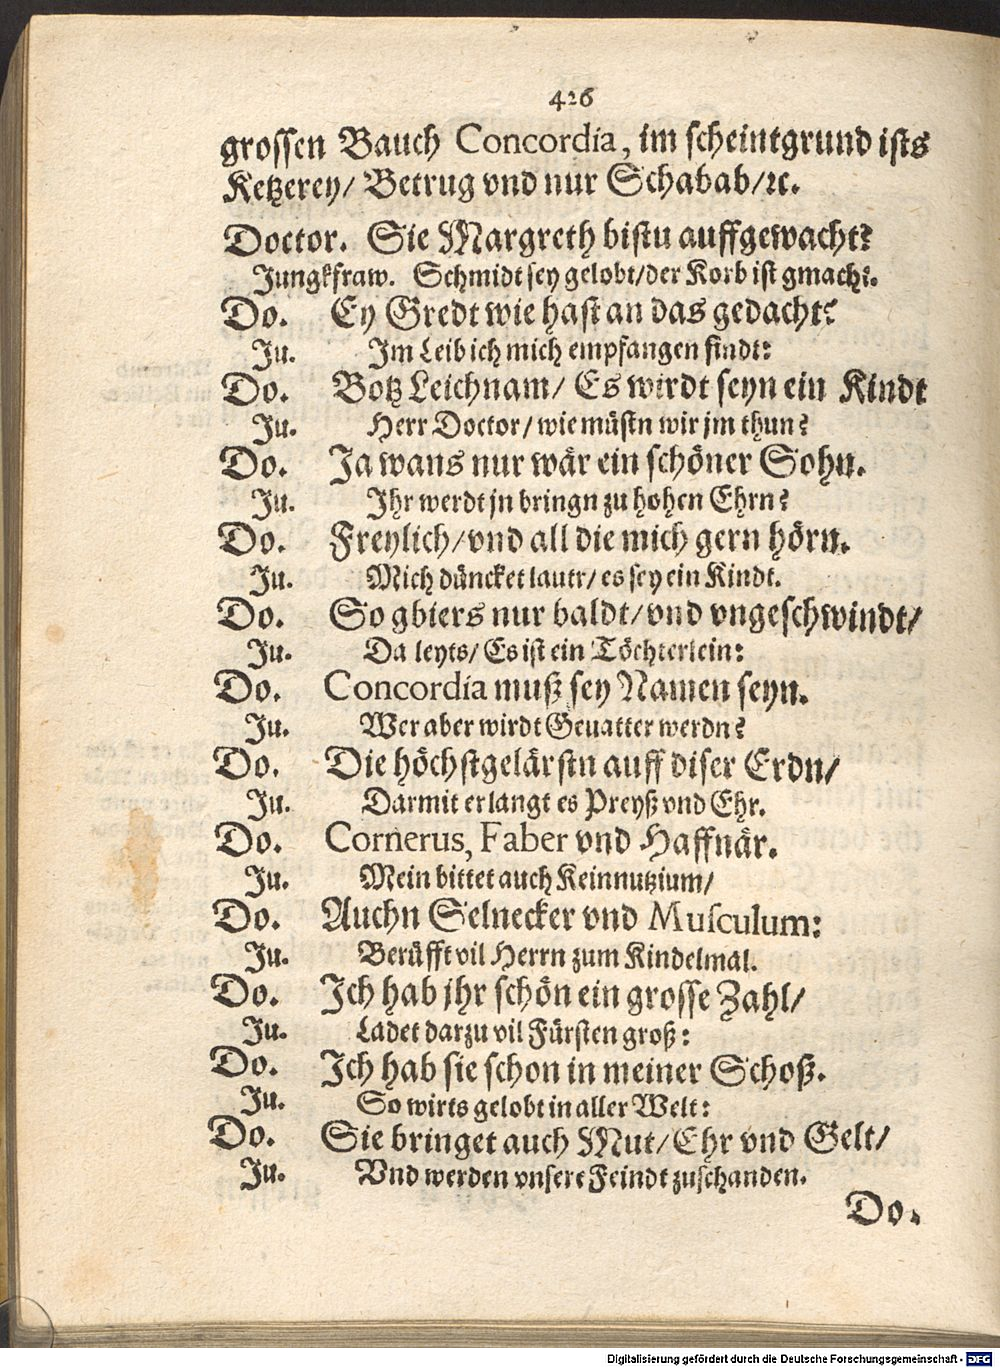 426
grossen Bauch Concordia, im scheintgrund ists
Ketzerey/ Betrug vnd nur Schabab/ꝛc.
Doctor. Sie Margreth bistu auffgewacht?
Jungkfraw. Schmidt sey gelobt/der Korb ist gmacht.
Do. Ey Gredt wie hast an das gedacht?
Ju. Im Leib ich mich empfangen findt:
Do. Botz Leichnam/ Es wirdt seyn ein Kindt
Ju. Herr Doctor/ wie müstn wir jm thun?
Do. Ja wans nur wär ein schöner Sohn.
Ju. Ihr werdt jn bringn zu hohen Ehrn?
Do. Freylich/vnd all die mich gern hörn.
Ju. Mich düncket lautr/ es sey ein Kindt.
Do. So gbiers nur baldt/vnd vngeschwindt/
Ju. Da leyts/ Es ist ein Töchterlein:
Do. Concordia muß sey Namen seyn.
Ju. Wer aber wirdt Geuatter werdn?
Do. Die höchstgelärstn auff diser Erdn/
Ju. Darmit erlangt es Preyß vnd Ehr.
Do. Cornerus, Faber vnd Haffnär.
Ju. Mein bittet auch Keinnutzium/
Do. Auchn Selnecker vnd Musculum:
Ju. Berüfft vil Herrn zum Kindelmal.
Do. Ich hab jhr schön ein grosse Zahl/
Ju. Ladet darzu vil Fürsten groß:
Do. Ich hab sie schon in meiner Schoß.
Ju. So wirts gelobt in aller Welt:
Do. Sie bringet auch Mut/ Ehr vnd Gelt/
Ju. Vnd werden vnsere Feindt zuschanden.
Do.
Digitalisierung gefördert durch die Deutsche Forschungsgemeinschaft - DFG